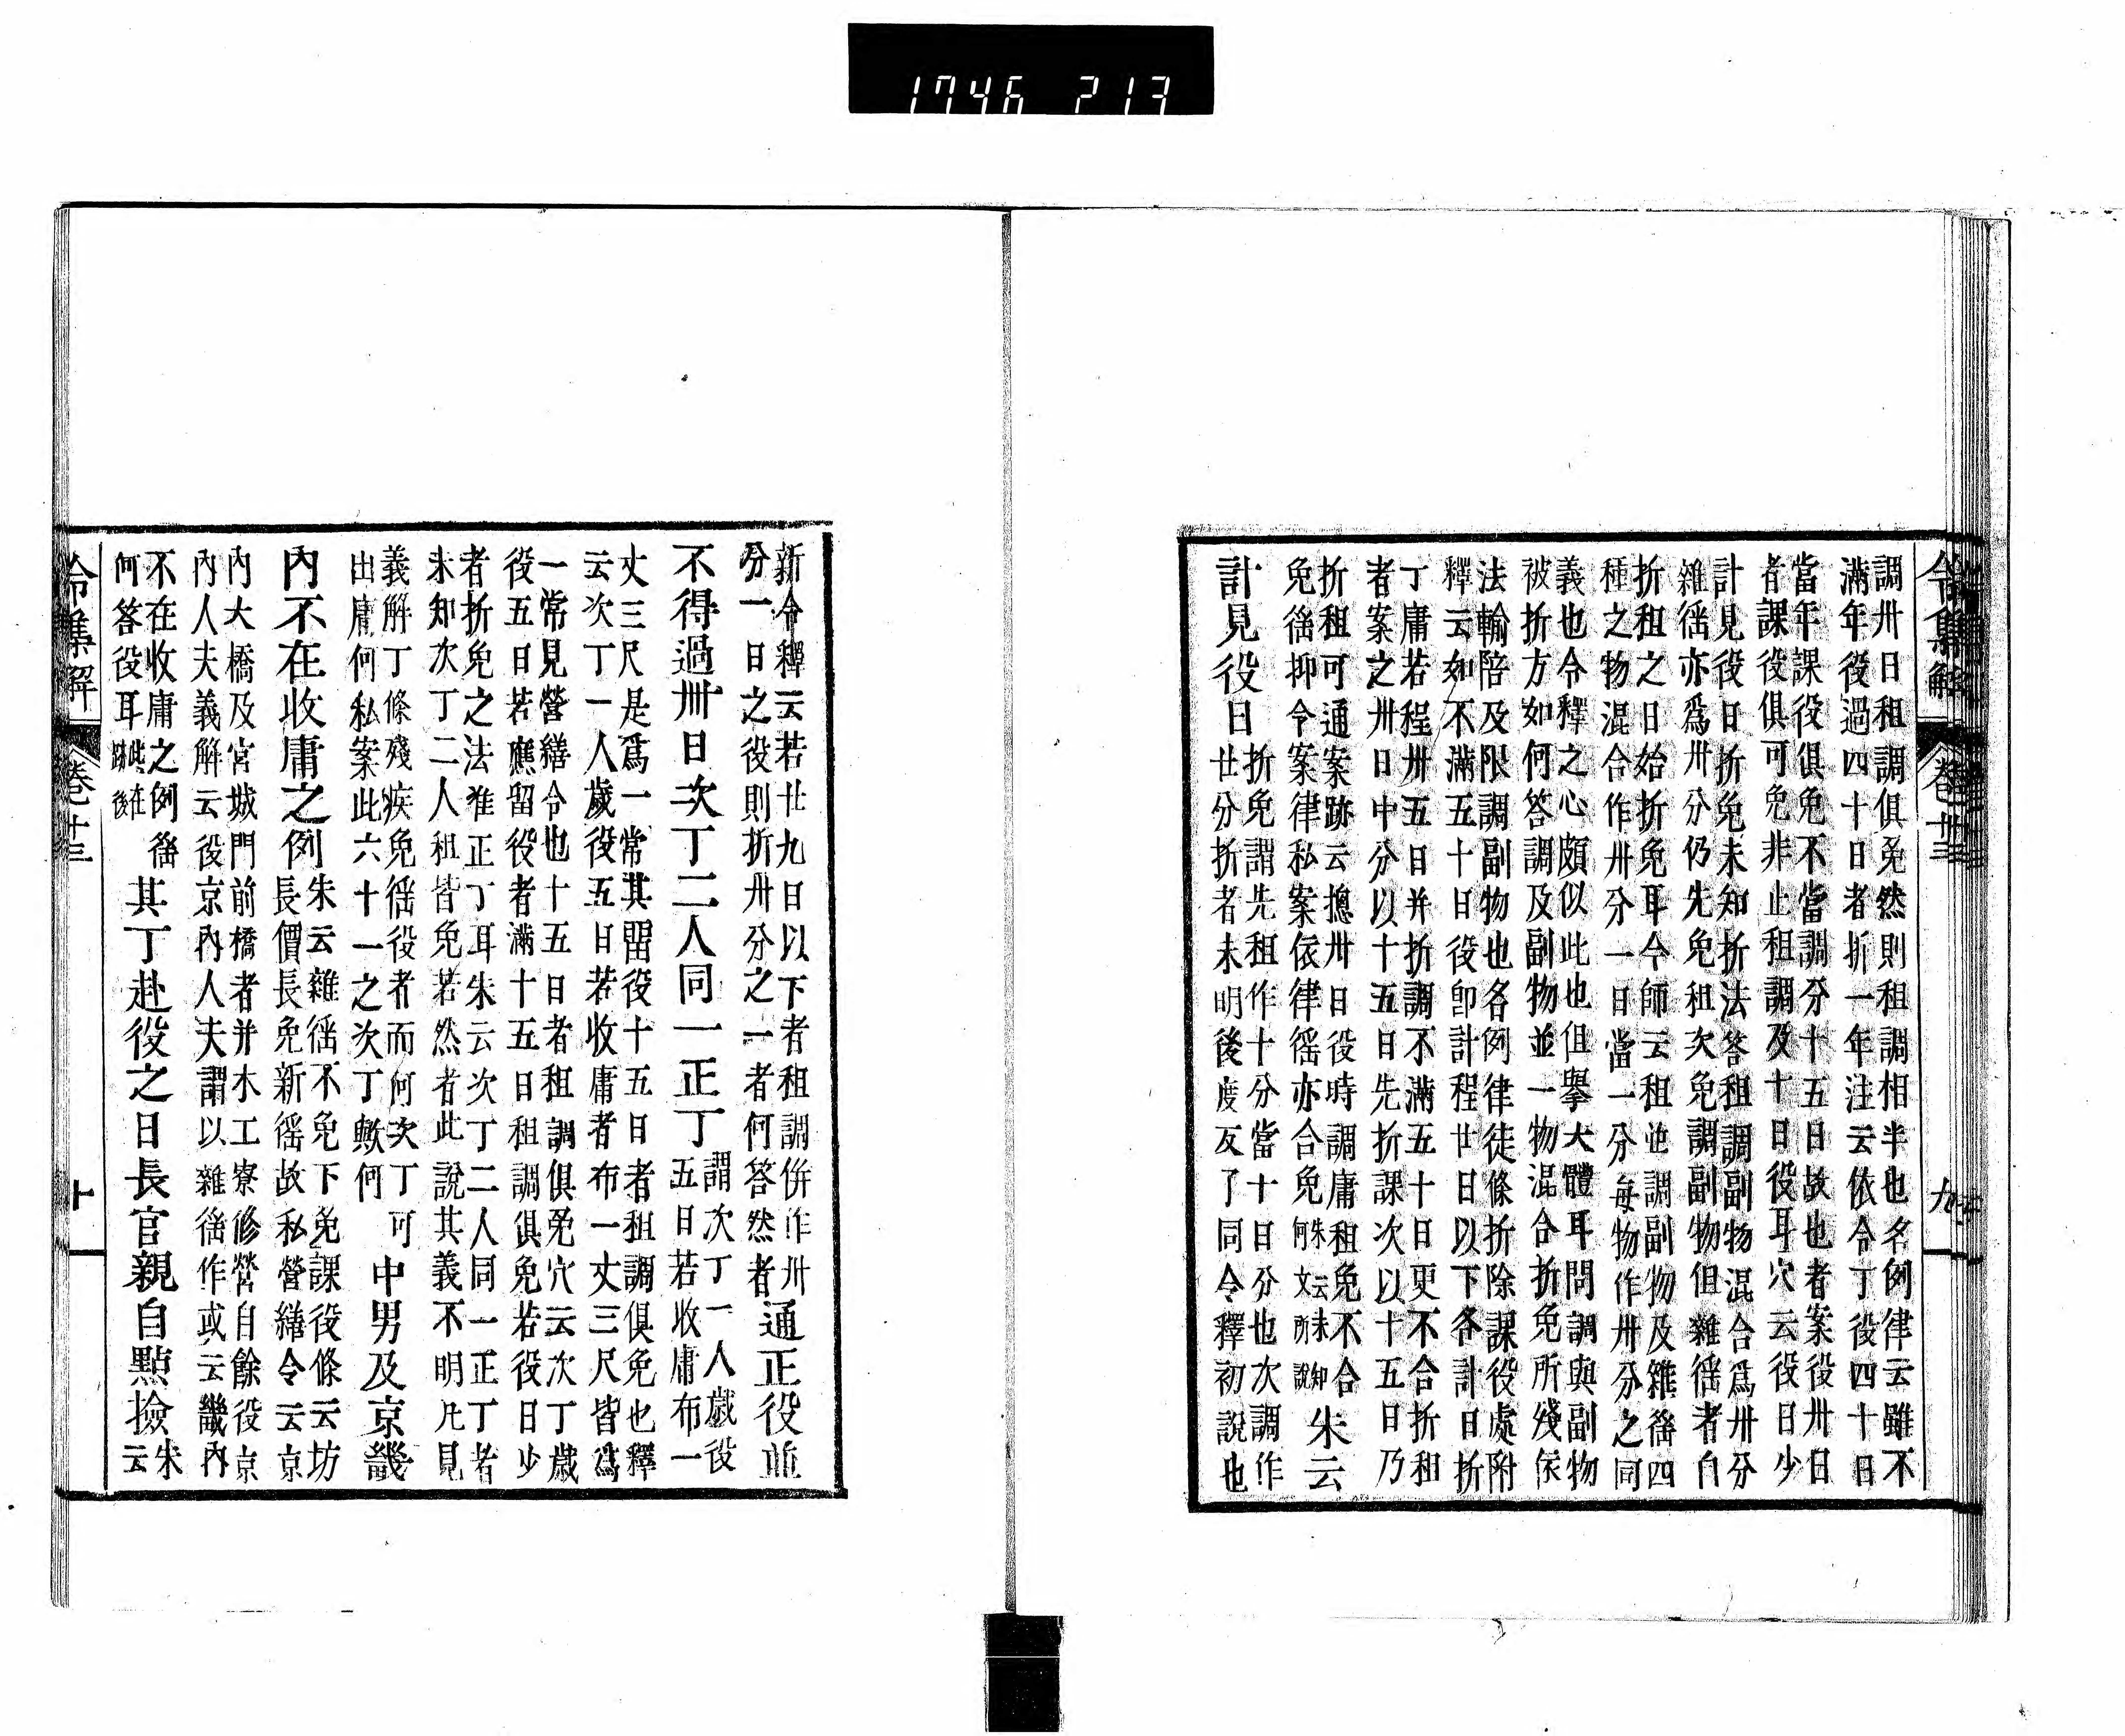 1746 213
調卅日租調俱免然則租調相半也名例律云雖不
滿年役過四十日者折一年注云依令丁役四十日
當年課役俱免不當調分十五日故也者案役卅日
者課役俱可免非止租調及十日役耳穴云役日少
計見役日折免未知折法答租調副物混合爲卅分
雜徭亦爲卅分仍先免租次免調副物但雜徭者自
折租之日始折免耳今師云租也調副物及雜徭四
種之物混合作卅分一日當一分每物作卅分之同
義也令釋之心頗似此也但擧大體耳問調與副物
被折方如何答調及副物並一物混合折免所殘俟
法輸陪及限調副物也各例律徒條折除課役處附
釋云如不滿五十日役卽計程廿日以下各計日折
丁庸若程卅五日并折調不滿五十日更不合折租
者案之卅日中分以十五日先折課次以十五日乃
折租可通案跡云摠卅日役時調庸租免不合
免徭抑令案律私案依律徭亦合免朱云未知何文所說朱云
計見役日折免謂先租作十分當十日分也次調作
廿分折者未明後度反了同令釋初說也
令集解 卷十三 九
新令釋云若廿九日以下者租調併作卅
分一日之役則折卅分之一者何答然者通正役並
不得過卅日次丁二人同一正丁謂次丁一人歲役
五日若收庸布一
丈三尺是爲一常其留役十五日者租調俱免也釋
云次丁一人歲役五日若收庸者布一丈三尺皆爲
一常見營繕令也十五日者租調俱免穴云次丁歲
役五日若應留役者滿十五日租調俱免若役日少
者折免之法准正丁耳朱云次丁二人同一正丁者
未知次丁二人租皆免若然者此說其義不明凡見
義解丁條殘疾免徭役者而何次丁可
出庸何私案此六十一之次丁歟何中男及京畿
內不在收庸之例朱云雜徭不免下免課役條云坊
長價長免新徭故私營繕令云京
內大橋及宮城門前橋者并木工寮修營自餘役京
內人夫義解云役京內人夫謂以雜徭作或云畿內
不在收庸之例徭
何答役耳此在跡後其丁赴役之日長官親自點撿朱云
令集解 卷十三 十